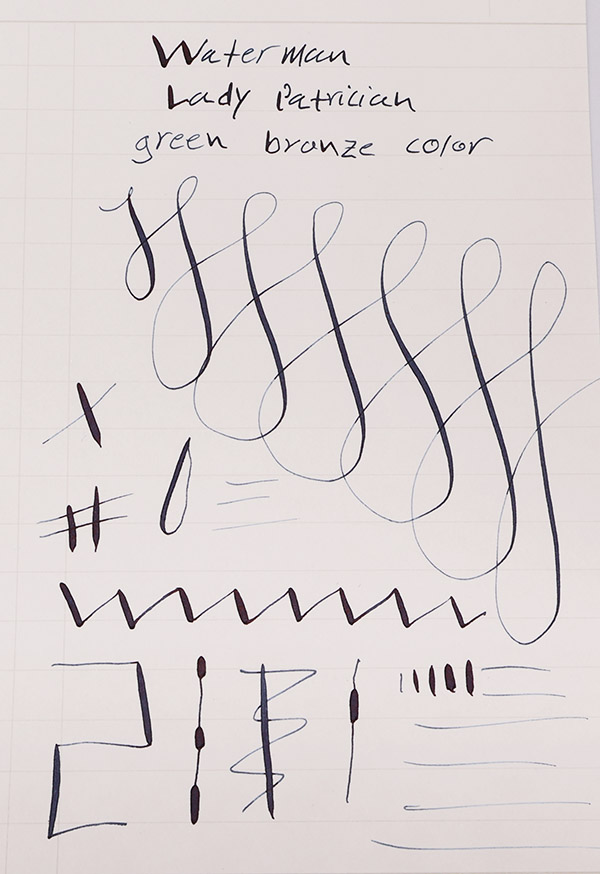 Waterman
Lady Patrician
green bronze color